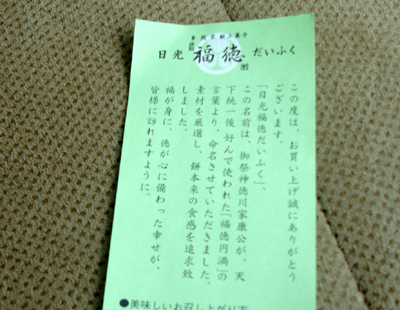 日光 福徳 だいふく
この度は、お買い上げ誠にありがとう
ございます。
「日光福徳だいふく」、
この名前は、御祭神徳川家康公が、天
下統一後好んで使われた「福徳円満」の
言葉より、命名させていただきました。
素材を厳選し、餅本来の食感を追求致
しました。
福が身に、徳が心に備わった幸せが、
皆様に訪れますように。
●美味しいお召し上がり方